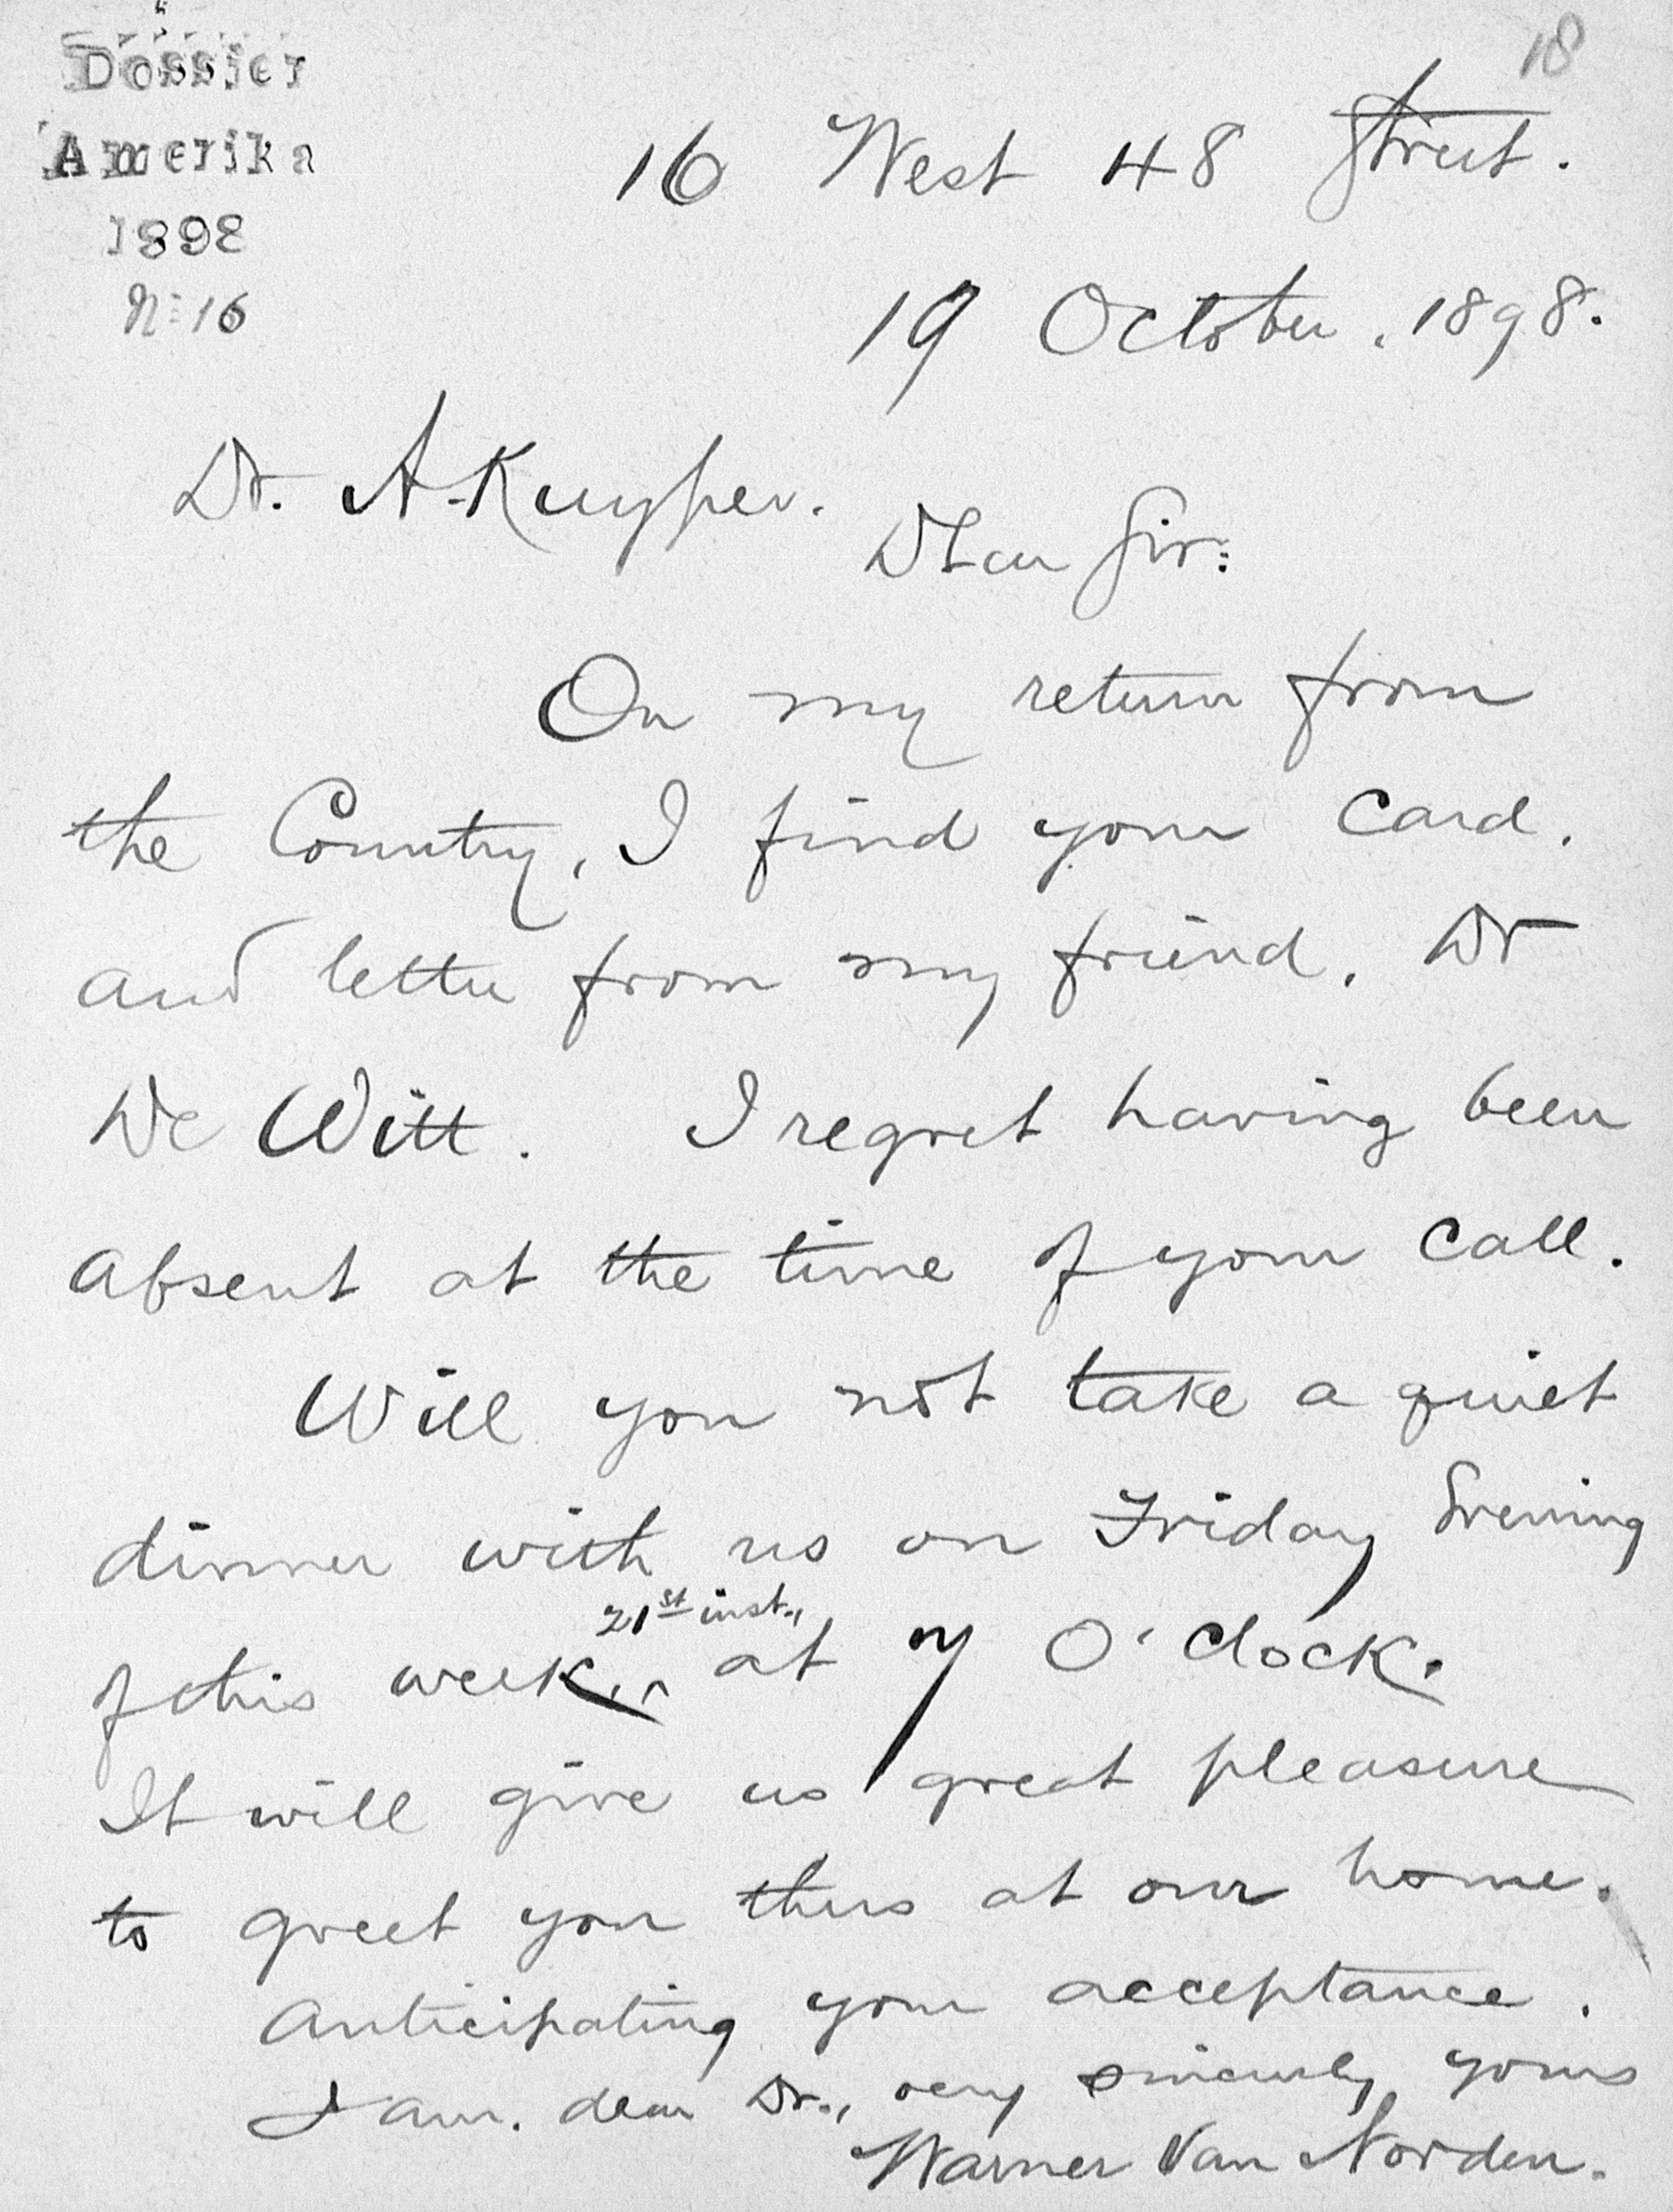 18
Dossier
Amerika
1898
No 16
16 West 48 Street.
19 October. 1898.
Dr. A. Kuyper.
Dear Sir:
On my return from
the Country, I find your Card.
and letter from my friend. Dr
De Witt. I regret having been
absent at the time of your Call.
Will you not take a quiet
dinner with us on Friday Evening
of this week, 21st inst., at 7 O'Clock.
It will give us great pleasure
to greet you thus at our home.
Anticipating your acceptance.
I am. dear Dr., very sincerely yours
Warner Van Norden.